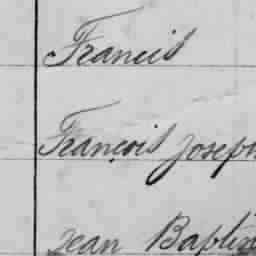 Francis
François Joseph
Jean Baptis